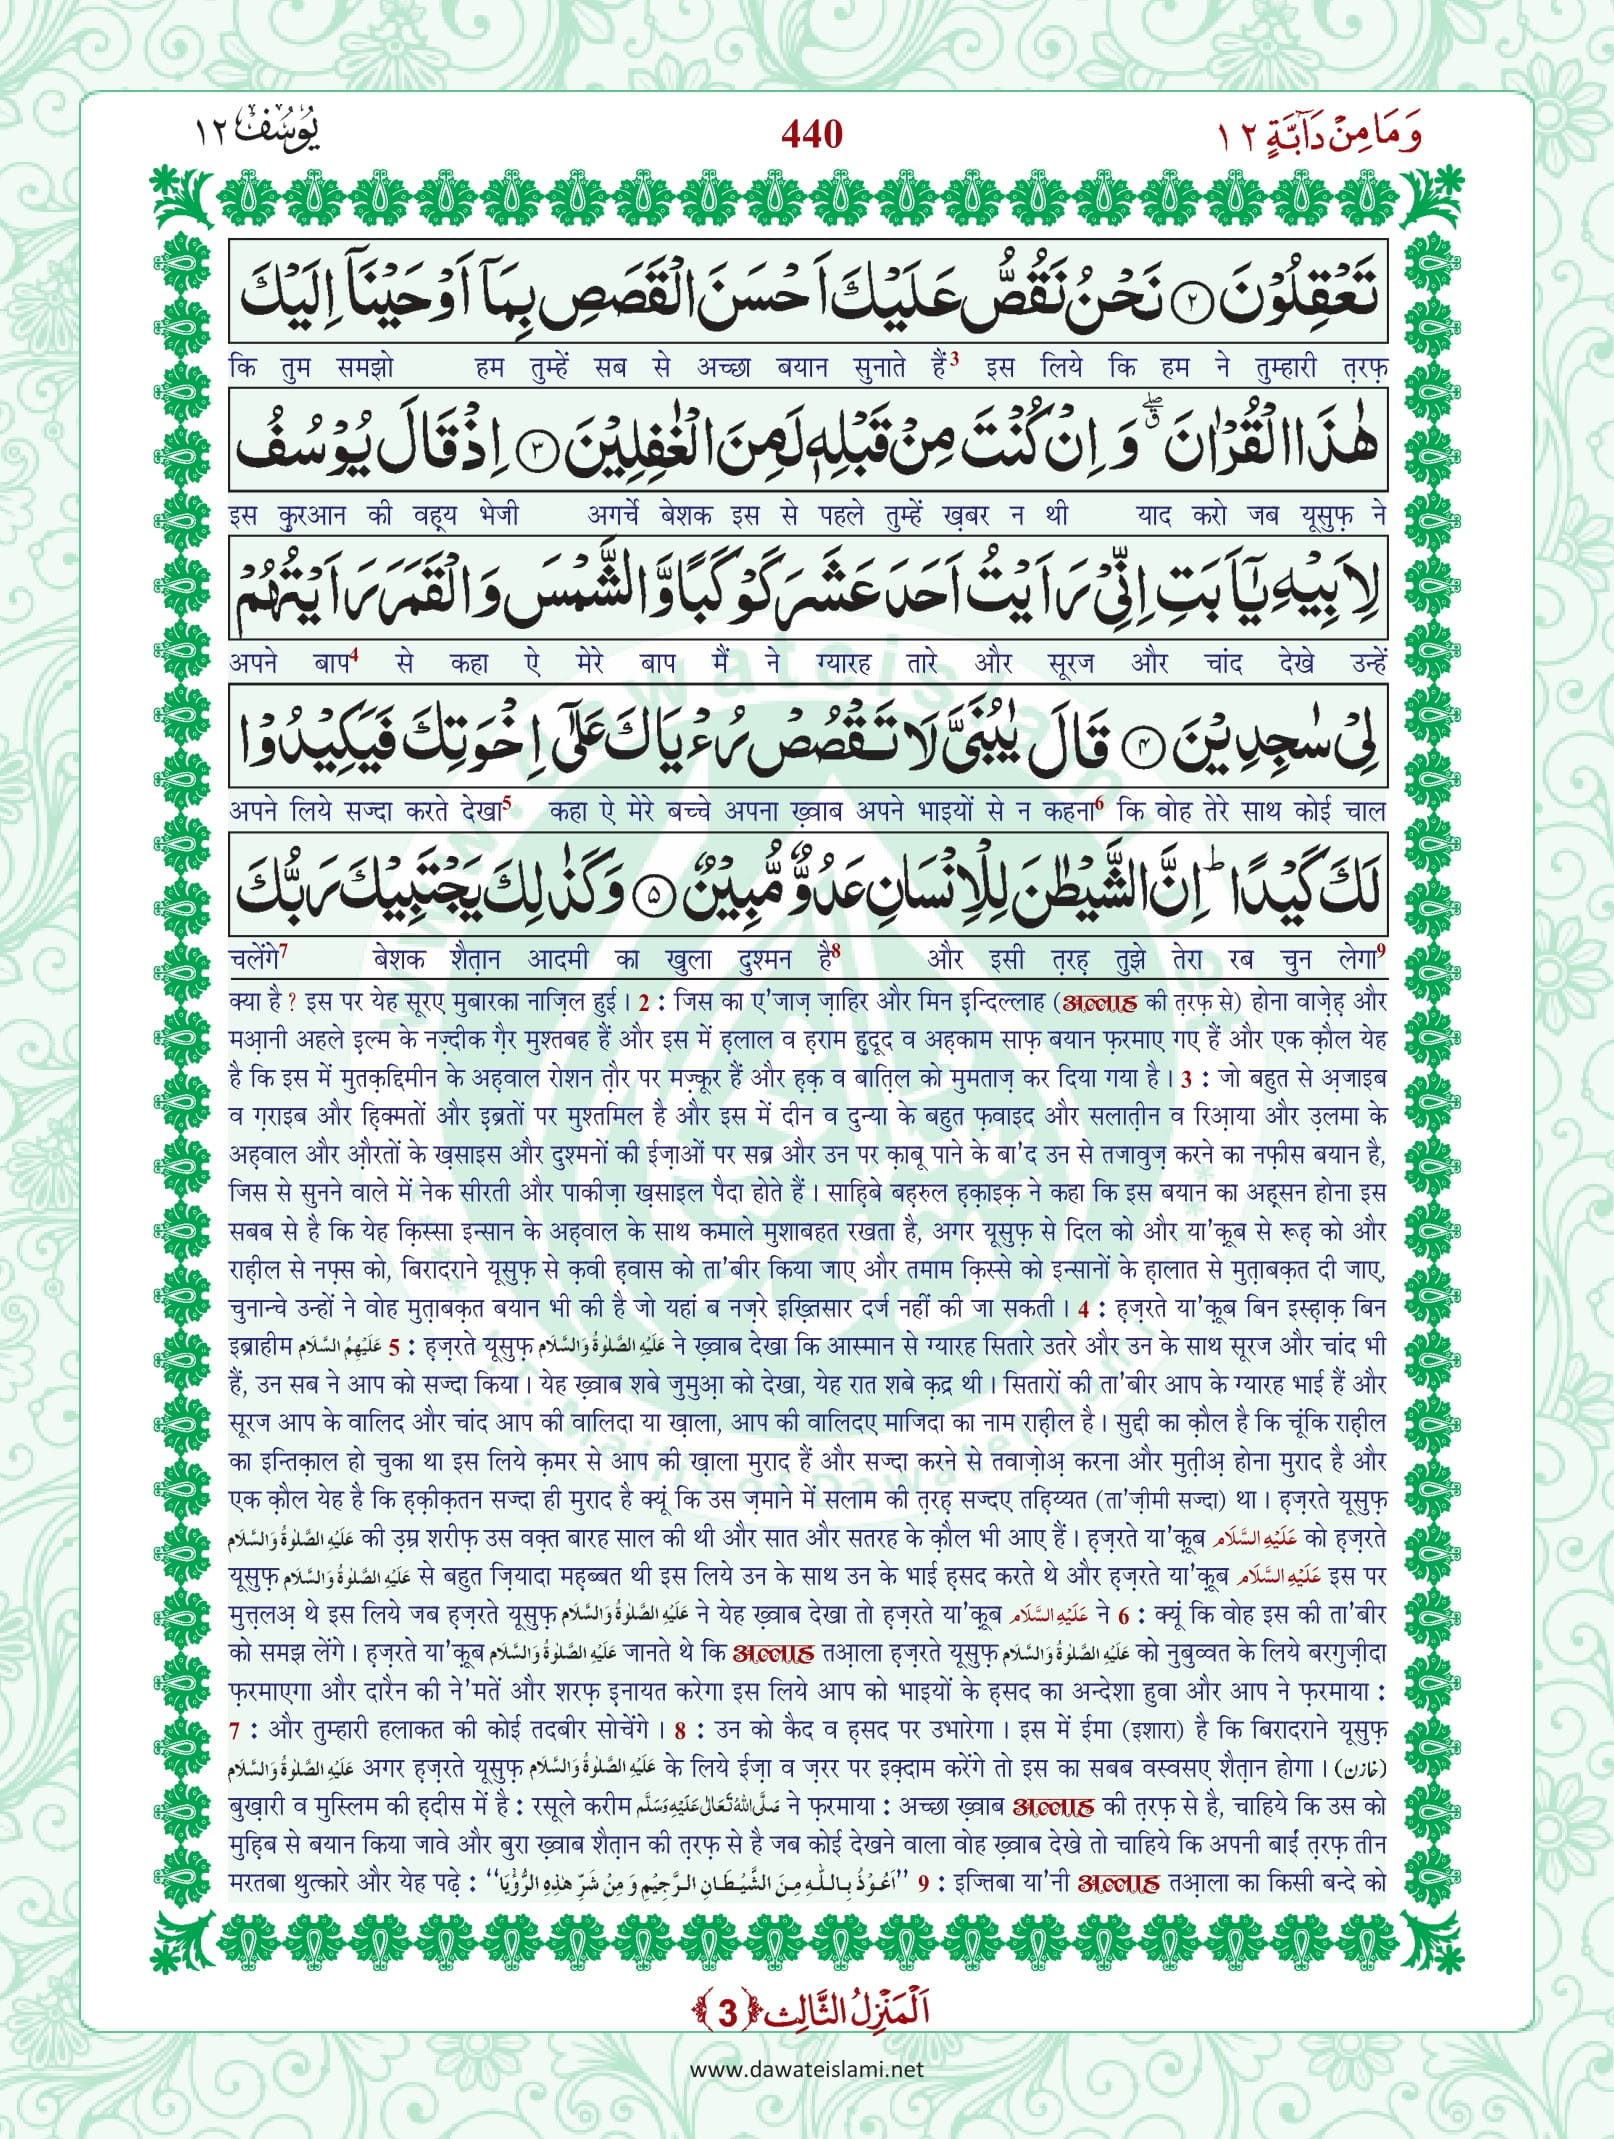 وَمَا مِنْ دَآبَّةٍ ١٢
440
يُوْسُف ١٢
تَعْقِلُوْنَ ﴿۲﴾ نَحْنُ نَقُصُّ عَلَيْكَ اَحْسَنَ الْقَصَصِ بِمَاۤ اَوْحَيْنَاۤ اِلَيْكَ
कि तुम समझो हम तुम्हें सब से अच्छा बयान सुनाते हैं3 इस लिये कि हम ने तुम्हारी त़रफ़
هٰذَا الْقُرْاٰنَ ۖۗ وَ اِنْ كُنْتَ مِنْ قَبْلِهٖ لَمِنَ الْغٰفِلِيْنَ ﴿۳﴾ اِذْ قَالَ يُوْسُفُ
इस क़ुरआन की वह़्य भेजी अगर्चे बेशक इस से पहले तुम्हें ख़बर न थी याद करो जब यूसुफ़ ने
لِاَبِيْهِ يٰۤاَبَتِ اِنِّيْ رَاَيْتُ اَحَدَ عَشَرَ كَوْكَبًا وَّالشَّمْسَ وَالْقَمَرَ رَاَيْتُهُمْ
अपने बाप4 से कहा ऐ मेरे बाप मैं ने ग्यारह तारे और सूरज और चांद देखे उन्हें
لِيْ سٰجِدِيْنَ ﴿۴﴾ قَالَ يٰبُنَيَّ لَا تَقْصُصْ رُءْيَاكَ عَلٰۤى اِخْوَتِكَ فَيَكِيْدُوْا
अपने लिये सज्दा करते देखा5 कहा ऐ मेरे बच्चे अपना ख़्वाब अपने भाइयों से न कहना6 कि वोह तेरे साथ कोई चाल
لَكَ كَيْدًا ؕ اِنَّ الشَّيْطٰنَ لِلْاِنْسَانِ عَدُوٌّ مُّبِيْنٌ ﴿۵﴾ وَكَذٰلِكَ يَجْتَبِيْكَ رَبُّكَ
चलेंगे7 बेशक शैत़ान आदमी का खुला दुश्मन है8 और इसी त़रह़ तुझे तेरा रब चुन लेगा9
क्या है ? इस पर येह सूरए मुबारका नाज़िल हुई। 2 : जिस का ए'जाज़ ज़ाहिर और मिन इ़न्दिल्लाह (अल्लाह की त़रफ़ से) होना वाज़ेह़ और
मआ़नी अहले इ़ल्म के नज़्दीक ग़ैर मुश्तबह हैं और इस में ह़लाल व ह़राम ह़ुदूद व अह़काम साफ़ बयान फ़रमाए गए हैं और एक क़ौल येह
है कि इस में मुतक़द्दिमीन के अह़वाल रोशन त़ौर पर मज़्कूर हैं और ह़क़ व बात़िल को मुमताज़ कर दिया गया है। 3 : जो बहुत से अ़जाइब
व ग़राइब और ह़िक्मतों और इ़ब्रतों पर मुश्तमिल है और इस में दीन व दुन्या के बहुत फ़वाइद और सलात़ीन व रिआ़या और उ़लमा के
अह़वाल और औ़रतों के ख़साइस और दुश्मनों की ईज़ाओं पर सब्र और उन पर क़ाबू पाने के बा'द उन से तजावुज़ करने का नफ़ीस बयान है,
जिस से सुनने वाले में नेक सीरती और पाकीज़ा ख़साइल पैदा होते हैं। साह़िबे बह़रुल ह़क़ाइक़ ने कहा कि इस बयान का अह़्सन होना इस
सबब से है कि येह क़िस्सा इन्सान के अह़वाल के साथ कमाले मुशाबहत रखता है, अगर यूसुफ़ से दिल को और या'क़ूब से रूह़ को और
राह़ील से नफ़्स को, बिरादराने यूसुफ़ से क़वी ह़वास को ता'बीर किया जाए और तमाम क़िस्से को इन्सानों के ह़ालात से मुत़ाबक़त दी जाए,
चुनान्चे उन्हों ने वोह मुत़ाबक़त बयान भी की है जो यहां ब नज़रे इख़्तिसार दर्ज नहीं की जा सकती। 4 : ह़ज़रते या'क़ूब बिन इस्ह़ाक़ बिन
इब्राहीम عَلَيْهِمُ السَّلَام 5 : ह़ज़रते यूसुफ़ عَلَيْهِ الصَّلٰوةُ وَالسَّلَام ने ख़्वाब देखा कि आस्मान से ग्यारह सितारे उतरे और उन के साथ सूरज और चांद भी
हैं, उन सब ने आप को सज्दा किया। येह ख़्वाब शबे जुमुआ़ को देखा, येह रात शबे क़द्र थी। सितारों की ता'बीर आप के ग्यारह भाई हैं और
सूरज आप के वालिद और चांद आप की वालिदा या ख़ाला, आप की वालिदए माजिदा का नाम राह़ील है। सुद्दी का क़ौल है कि चूंकि राह़ील
का इन्तिक़ाल हो चुका था इस लिये क़मर से आप की ख़ाला मुराद हैं और सज्दा करने से तवाज़ोअ़ करना और मुत़ीअ़ होना मुराद है और
एक क़ौल येह है कि ह़क़ीक़तन सज्दा ही मुराद है क्यूं कि उस ज़माने में सलाम की त़रह़ सज्दए तह़िय्यत (ता'ज़ीमी सज्दा) था। ह़ज़रते यूसुफ़
عَلَيْهِ الصَّلٰوةُ وَالسَّلَام की उ़म्र शरीफ़ उस वक़्त बारह साल की थी और सात और सतरह के क़ौल भी आए हैं। ह़ज़रते या'क़ूब عَلَيْهِ السَّلَام को ह़ज़रते
यूसुफ़ عَلَيْهِ الصَّلٰوةُ وَالسَّلَام से बहुत ज़ियादा मह़ब्बत थी इस लिये उन के साथ उन के भाई ह़सद करते थे और ह़ज़रते या'क़ूब عَلَيْهِ السَّلَام इस पर
मुत़्त़लअ़ थे इस लिये जब ह़ज़रते यूसुफ़ عَلَيْهِ الصَّلٰوةُ وَالسَّلَام ने येह ख़्वाब देखा तो ह़ज़रते या'क़ूब عَلَيْهِ السَّلَام ने 6 : क्यूं कि वोह इस की ता'बीर
को समझ लेंगे। ह़ज़रते या'क़ूब عَلَيْهِ الصَّلٰوةُ وَالسَّلَام जानते थे कि अल्लाह तआ़ला ह़ज़रते यूसुफ़ عَلَيْهِ الصَّلٰوةُ وَالسَّلَام को नुबुव्वत के लिये बरगुज़ीदा
फ़रमाएगा और दारैन की ने'मतें और शरफ़ इ़नायत करेगा इस लिये आप को भाइयों के ह़सद का अन्देशा हुवा और आप ने फ़रमाया :
7 : और तुम्हारी हलाकत की कोई तदबीर सोचेंगे। 8 : उन को कैद व ह़सद पर उभारेगा। इस में ईमा (इशारा) है कि बिरादराने यूसुफ़
عَلَيْهِ الصَّلٰوةُ وَالسَّلَام अगर ह़ज़रते यूसुफ़ عَلَيْهِ الصَّلٰوةُ وَالسَّلَام के लिये ईज़ा व ज़रर पर इक़्दाम करेंगे तो इस का सबब वस्वसए शैत़ान होगा। (خازن)
बुख़ारी व मुस्लिम की ह़दीस में है : रसूले करीम صَلَّى اللهُ تَعَالٰى عَلَيْهِ وَسَلَّم ने फ़रमाया : अच्छा ख़्वाब अल्लाह की त़रफ़ से है, चाहिये कि उस को
मुह़िब से बयान किया जावे और बुरा ख़्वाब शैत़ान की त़रफ़ से है जब कोई देखने वाला वोह ख़्वाब देखे तो चाहिये कि अपनी बाईं त़रफ़ तीन
मरतबा थुत्कारे और येह पढ़े : ‘‘اَعُوْذُ بِاللّٰهِ مِنَ الشَّيْطَانِ الرَّجِيْمِ وَ مِنْ شَرِّ هٰذِهِ الرُّؤْيَا’’ 9 : इज्तिबा या'नी अल्लाह तआ़ला का किसी बन्दे को
اَلْمَنْزِلُ الثَّالِث ﴿3﴾
www.dawateislami.net